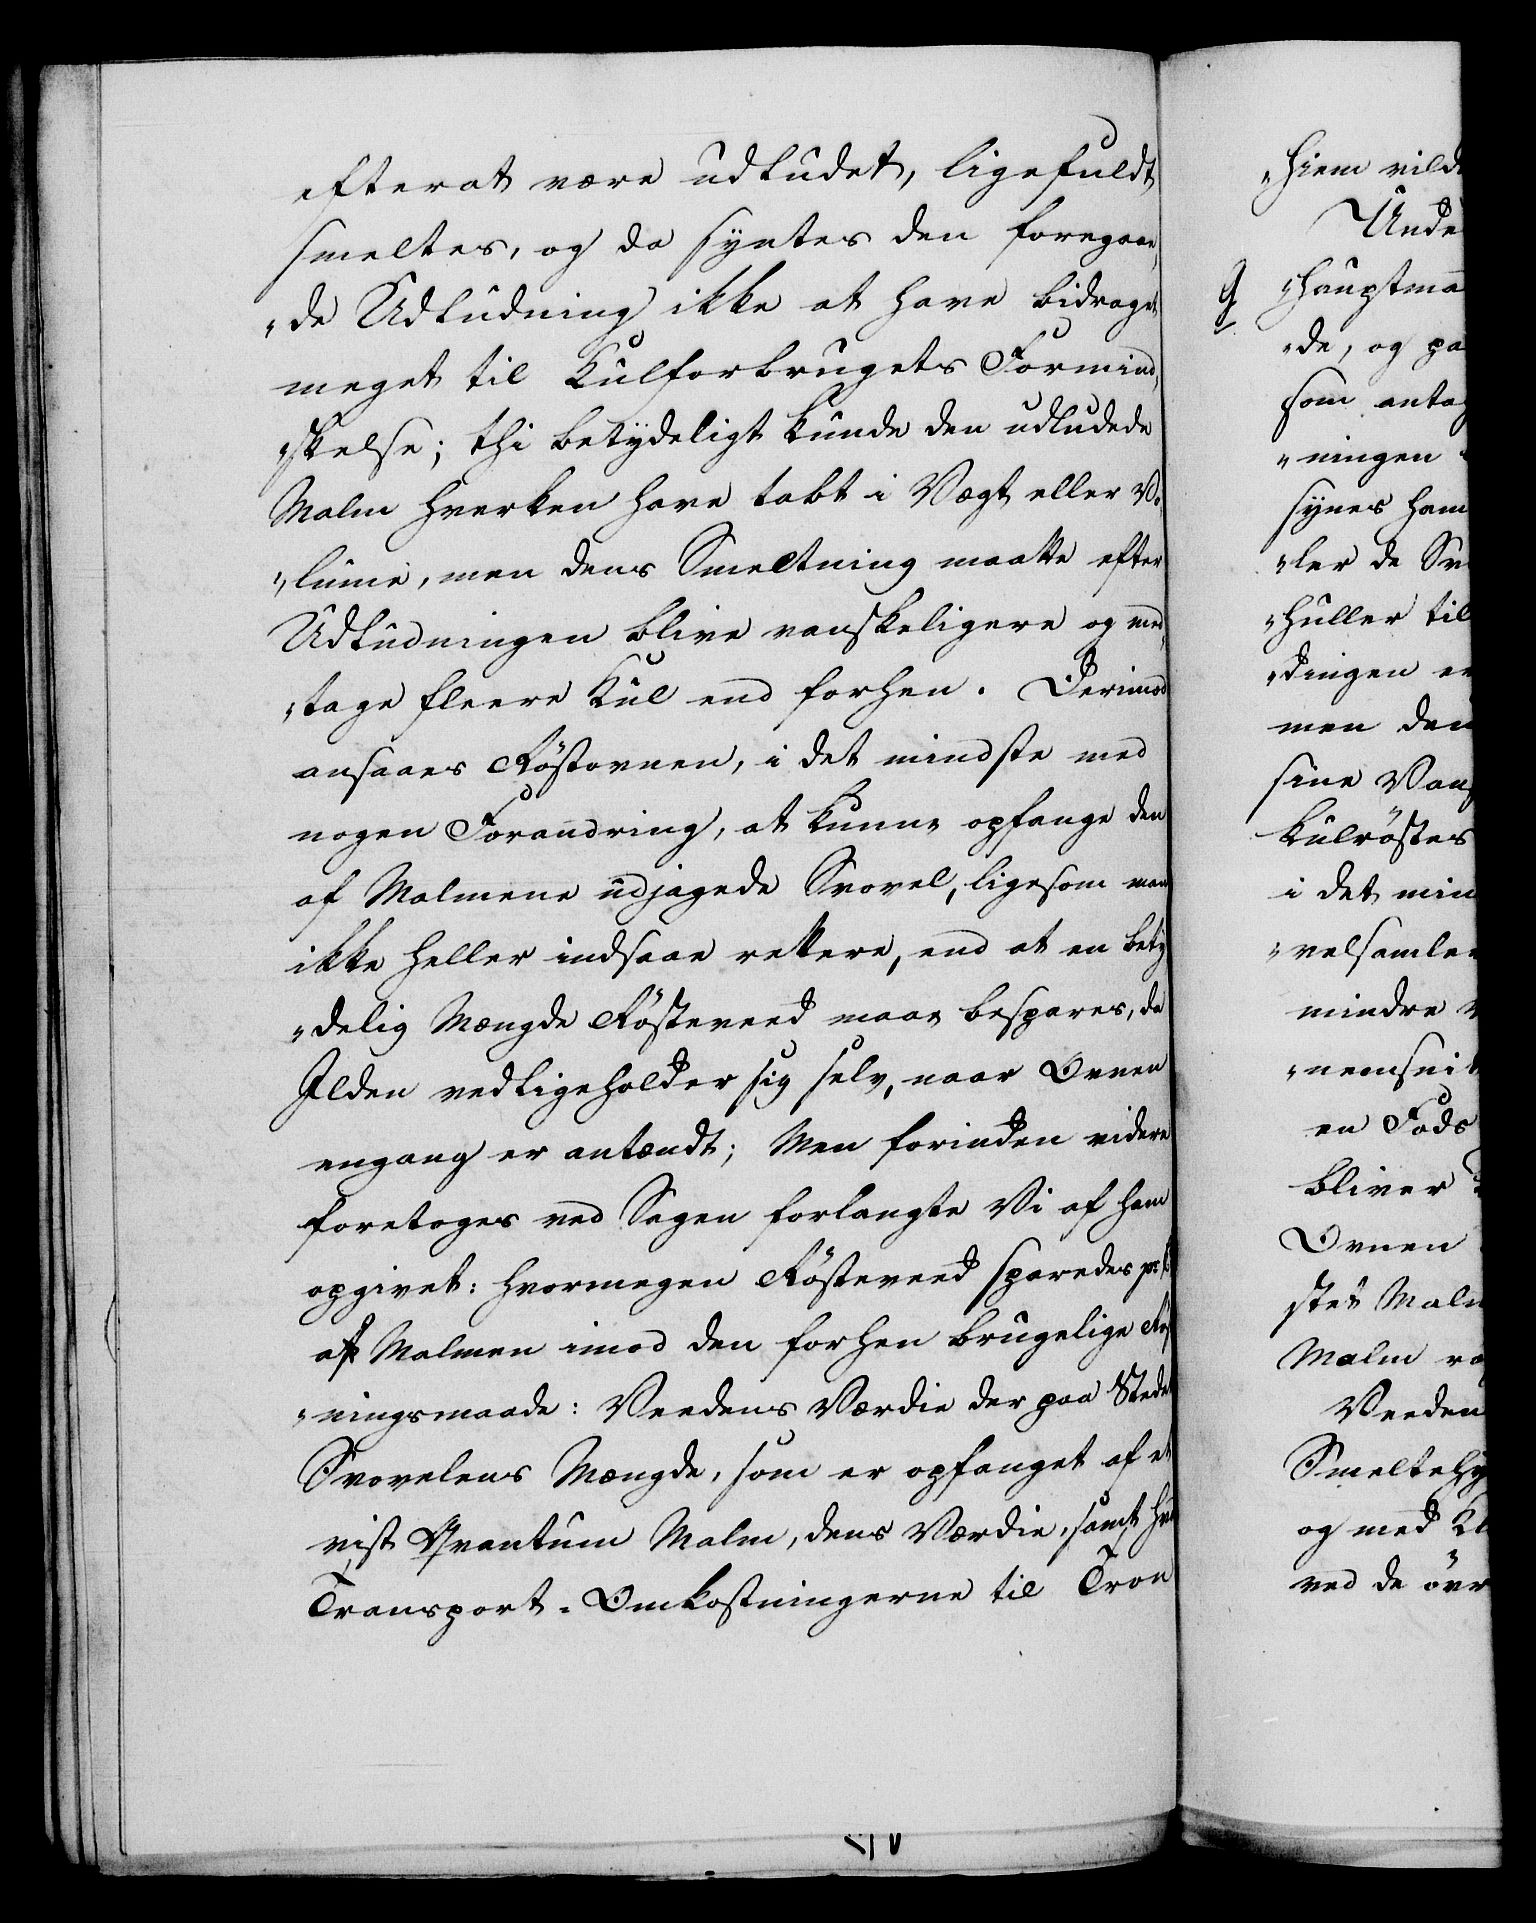 efterat være udludet, ligefuldt
smeltes, og da syntes den foregaaen„
„de Udludning ikke at have bidraget
meget til Kulforbrugets Formind„
„skelse; thi betydeligt kunde den udludede
Malm hverken have tabt i Vægt eller Vo„
„lumie, men dens Smeltning maatte efter
Udludningen blive vanskeligere og med„
„tage fleere Kul end forhen. Derimod
ansaaes Röstovnen, i det mindste med
nogen Forandring, at kunne opfange den
af Malmene udjagede Svovel, ligesom man
ikke heller indsaae rettere, end at en bety
„delig Mængde Rösteveed maae bespares, da
Ilden vedligeholder sig selv, naar Ovnen
engang er antændt; Men forinden videre
foretoges ved Sagen forlangte Vi af ham
opgivet: hvormegen Rösteveed sparedes pr:
af Malmen imod den forhen brugelige Röst
„ningsmaade: Veedens Værdie der paa Stedet
Svovelens Mængde, som er opfanget af et
vist Qvantum Malm, dens Værdie, samt
Transport-Omkostningerne til Tron
„hiem vild
Unde
„hauptma
„de, og pa
som antag
„ningen
synes ham
„ler de Sv
„huller til
„dingen er
men den
sine Vans
Kulröstes
i det min
„velsamle
mindre
„nemsnit
en Fods
bliver
Ovnen
stet Malm
Malm
Veeden
Smeltehy
og med Kl
ved de övr